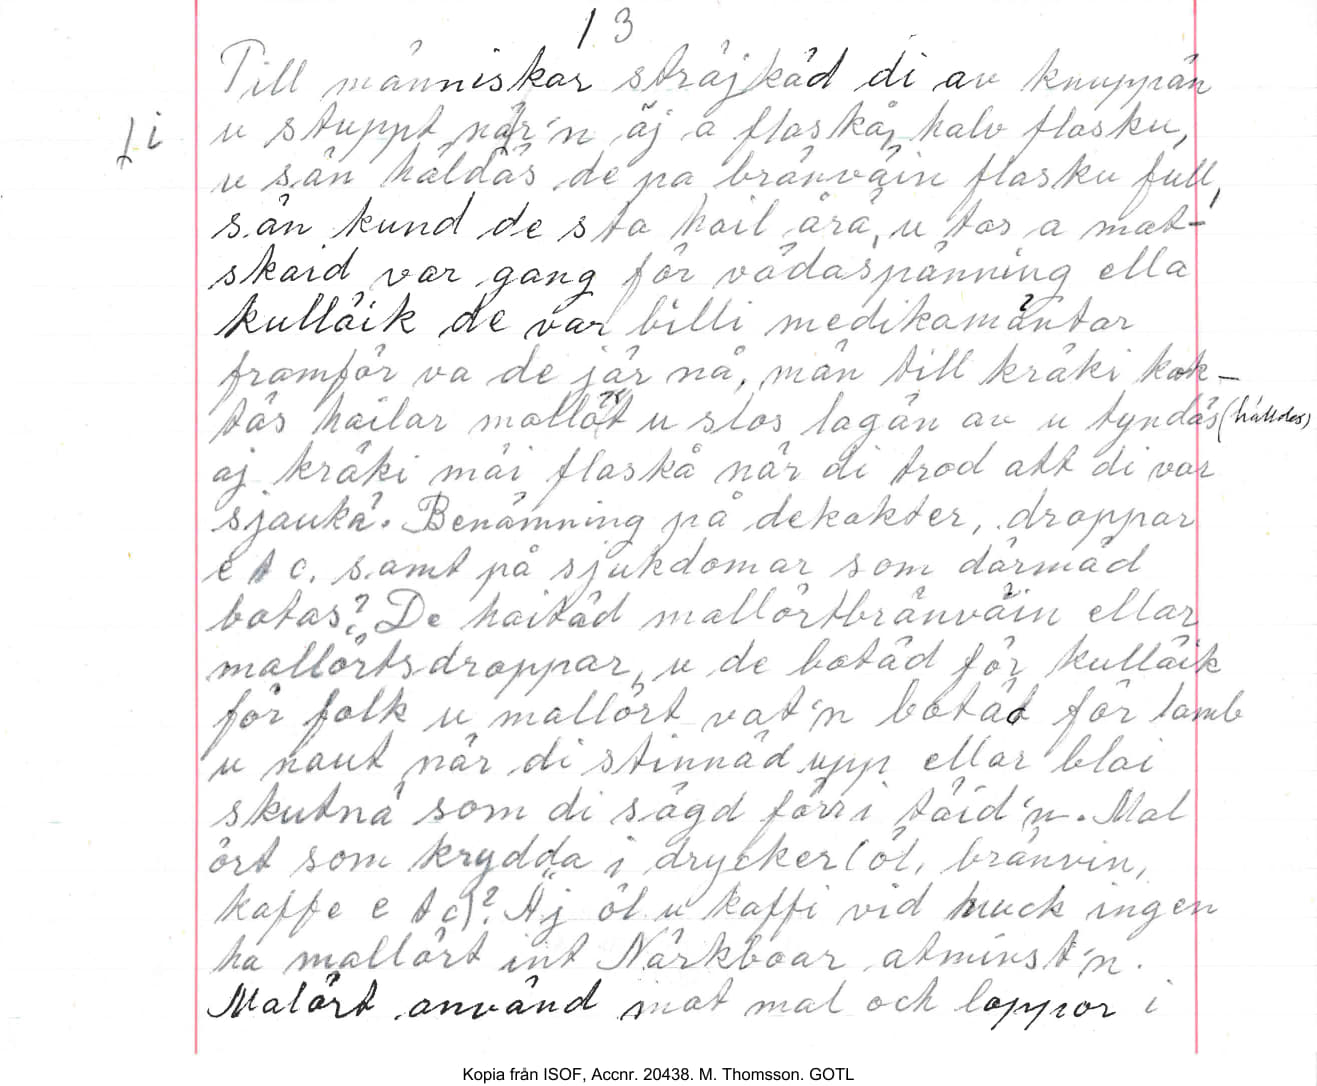 13
Till människar sträjkäd di av knuppän
u stuppt när'n äj a flaskå, halv flasku,
fi
u sän häldäs de pa brännväin flasku full,
sän kund de sta hail ärä, u tas a mat-
skaid var gang för vädaspänning ella
kulläik de var billi medikamäntar
framför va de jär nå, män till kräki kok-
täs hailar mallört u slos lagän av u tyndäs (hälldes)
äj kräki mäi flaskå när di trod att di var
sjaukä. Benämning på dekokter, droppar
e t c. samt på sjukdomar som därmäd
botas? De haitäd mallörtbränväin ellar
mallörtsdroppar, u de botäd för kulläik
för folk u mallört vat'n botäd för lamb
u naut när di stinnäd upp ellar blai
skutnä som di sägd förri täid'n. Mal
ört som krydda i drycker (öl, bränvin,
kaffe e t c)? Äj öl u kaffi vid muck ingen
ha mallört int Närkboar atminst'n.
Malört använd mot mal och loppor i
Kopia från ISOF, Accnr. 20438. M. Thomsson. GOTL